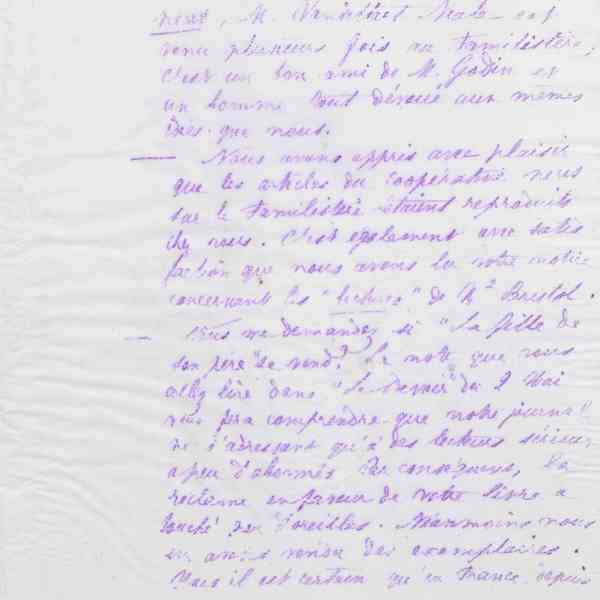 news, M. Vansittart Neale est
venu plusieurs fois au Familistère,
c'est un bon ami de M. Godin et
un homme tout dévoué aux mêmes
idées que nous.
— Nous avons appris avec plaisir
que les articles du coopérative news
sur le Familistère étaient reproduits
chez vous. C'est également avec satis
faction que nous avons lu votre notice
concernant les "lectures" de Mr Bristol.
— Vous me demandez si "La fille de
son père" se vend? La note que vous
allez lire dans "Le Devoir" du 9 Mai
vous fera comprendre que notre journal
ne s'adressant qu'à des lecteurs sérieux
a peu d'abonnés. Par conséquent, la
réclame en faveur de votre livre a
touché peu d'oreilles. Néanmoins nous
en avons vendu des exemplaires.
Mais il est certain qu'en France depuis